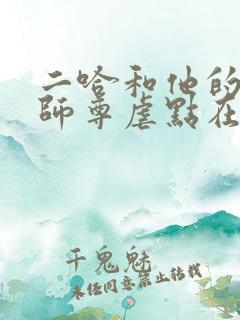 二哈和他的
師尊虐點在
千鬼魅
未经同意禁止转载